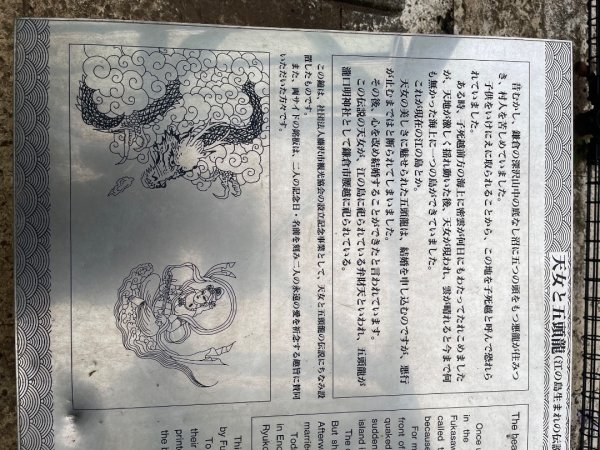 天女と五頭龍(江の島生まれの伝説
昔むかし、鎌倉の深沢山中の底なし沼に五つの頭をもつ悪龍が住みつ
き、村人を苦しめていました。
子供をいけにえに取られることから、この地を子死越と呼んで恐れら
れていました。
ある時、子死越前方の海上に密雲が何日にもわたってたれこめました
が、天地が激しく揺れ動いた後、天女が現われ、雲が晴れると今まで何
も無かった海上に一つの島ができていました。
これが現在の江の島とか。
天女の美しさに魅せられた五頭龍は、結婚を申し込むのですが、悪行
が止むまではと断られてしまいました。
その後、心を改め結婚することができたと言われています。
この伝説の天女が、江の島に祀られている弁財天といわれ、五頭龍が
瀧口明神社として鎌倉市腰越に祀られている。
この鐘は、社団法人藤沢市観光協会の設立記念事業として、天女と五頭龍の伝説にちなみ設
置したものです。
また、両サイドの銘板は、二人の記念日・名前を刻み二人の永遠の愛を祈念する趣旨に賛同
いただいた方々です。
The bea
Once u
in the
Fukasaw
called t
because
For m
front of
quaked
sudden
island i
The
But sh
Afterw
marrie
Toda
in Eno
Ryuko
This
by Fu
To
their
print
the b